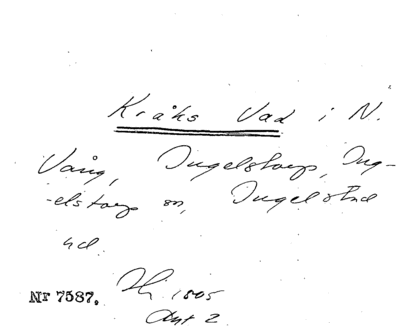 Kråks Vad i N.
Vång, Ingelstorp, Ing-
-elstorp sn, Ingelstad
hd.
Nr 7587. 1805
Akt 2